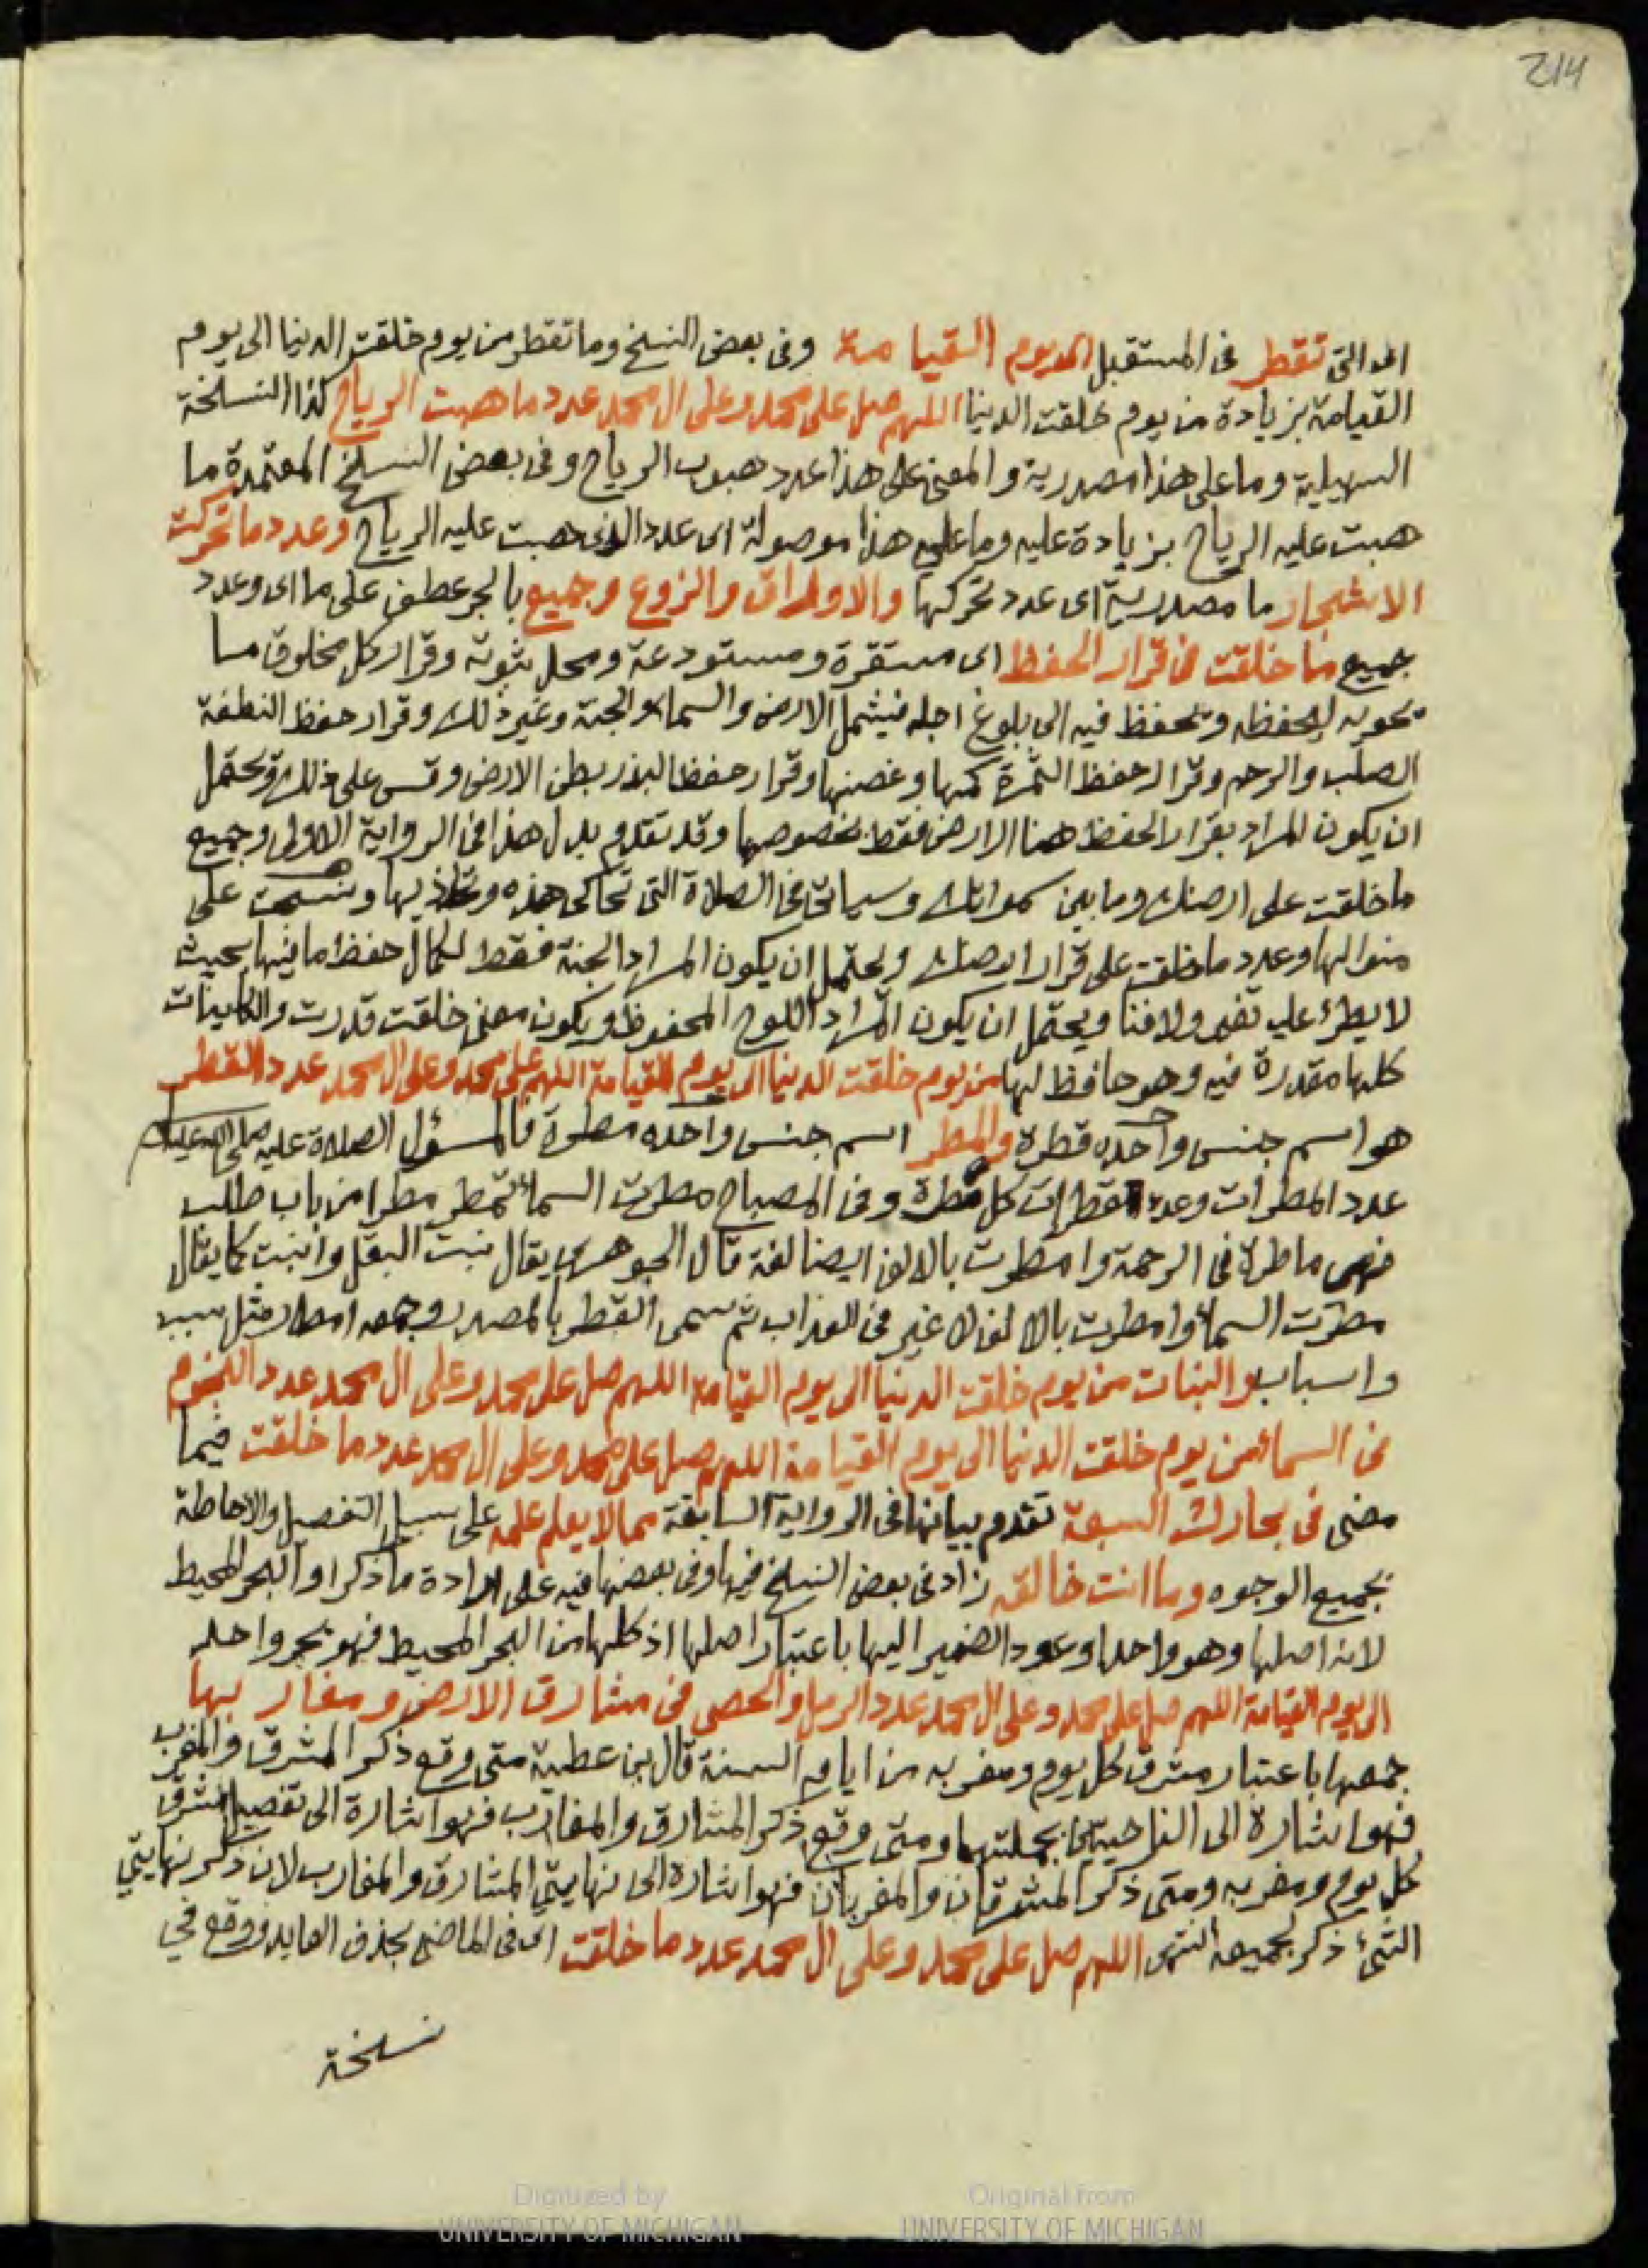 214
اى التى تقطر فى المستقبل الى يوم القيا مة وفى بعض النسخ وما تقطر من يوم خلقت الدنيا الى يوم
القيامة بزيادة من يوم خلقت الدنيا اللهم صل على محمد وعلى ال محمد عدد ما هبت الرياح كذا النسخة
السهيلية وما على هذا مصدرية والمعنى على هذا عدد هبوب الرياح وفى بعض النسخ المعتمدة ما
هبت عليه الرياح بزيادة عليه وما على هذا موصولة اى عدد الذى هبت عليه الرياح وعدد ما تحركت
الاشجار ما مصدرية اى عدد تحركها والاوراق والزروع وجميع بالجر عطف على ما اى وعدد
جميع ما خلقت فى قرار الحفظ اى مستقرة ومستودعة ومحل ثبوته وقرار كل مخلوق ما
تحويه لحفظه وتحفظ فيه الى بلوغ اجله فيشمل الارض والسماء والجنة وغير ذلك وقرار حفظ النطفة
الصلب والرحم وقرار حفظ الثمرة كمها وغصنها وقرار حفظ البذر بطن الارض وقس على ذلك ويحتمل
ان يكون المراد بقرار الحفظ هنا الارض فقط بخصوصها وقد تقدم بدل هذا فى الرواية الاولى وجميع
ما خلقت على ارضك وما بين سمواتك وسياتى فى الصلاة التى تحاكى هذه وتحاذيها ونسجت على
منوالها وعدد ما خلقت على قرار ارضك ويحتمل ان يكون المراد الجنة فقط لكمال حفظ ما فيها بحيث
لا يطرأ عليه تغير ولا فنا ويحتمل ان يكون المراد اللوح المحفوظ ويكون معنى خلقت قدرت والكاينات
كلها مقدرة فيه وهو حافظ لها من يوم خلقت الدنيا الى يوم القيامة اللهم على محمد وعلى ال محمد عدد القطر
هو اسم جنس واحده قطرة والمطر اسم جنس واحده مطرة فالمسؤل الصلاة عليه صلى الله عليه
عدد المطرات وعدد قطرات كل مطرة وفى المصباح مطرت السماء تمطر مطرا من باب طلب
فهى ماطرة فى الرحمة وامطرت بالالف ايضا لغة قال الجوهرى يقال نبت البقل وانبت كما يقال
مطرت السماء وامطرت بالالف لا غير فى العذاب ثم سمى القطر بالمصدر وجمعه امطار مثل سبب
واسباب والنبات من يوم خلقت الدنيا الى يوم القيامة اللهم صل على محمد وعلى ال محمد عدد النجوم
فى السماء من يوم خلقت الدنيا الى يوم القيا مة اللهم صل على محمد وعلى ال محمد عدد ما خلقت فيما
مضى فى بحارك السبعة تقدم بيانها فى الرواية السابقة مما لا يعلم علمه على سبيل التفصيل والاحاطة
بجميع الوجوه وما انت خالقه زاد فى بعض النسخ فيها وفى بعضها فيه على ارادة ما ذكر او البحر المحيط
لانه اصلها وهو واحد او عود الضمير اليها باعتبار اصلها اذ كلها من البحر المحيط فهو بحر واحد
الى يوم القيامة اللهم صل على محمد وعلى ال محمد عدد الرمل والحصى فى مشارق الارض ومغار بها
جمعها باعتبار مشرق كل يوم ومغربه من ايام السنة قال بن عطية متى وقع ذكر المشرق والمغرب
فهو اشارة الى الناحيتين بجملتهما ومتى وقع ذكر المشارق والمغارب فهو اشارة الى تفصيل مشرق
كل يوم ومغربه ومتى ذكر المشرقان والمغربان فهو اشارة الى نهايتى المشارق والمغارب لان ذكر نهايتى
الشئ ذكر لجميعه انتهى اللهم صل على محمد وعلى ال محمد عدد ما خلقت اى فى الماضى بحذف العايد ووقع في
نسخة
Digitized by
UNIVERSITY OF MICHIGAN
Original from
UNIVERSITY OF MICHIGAN